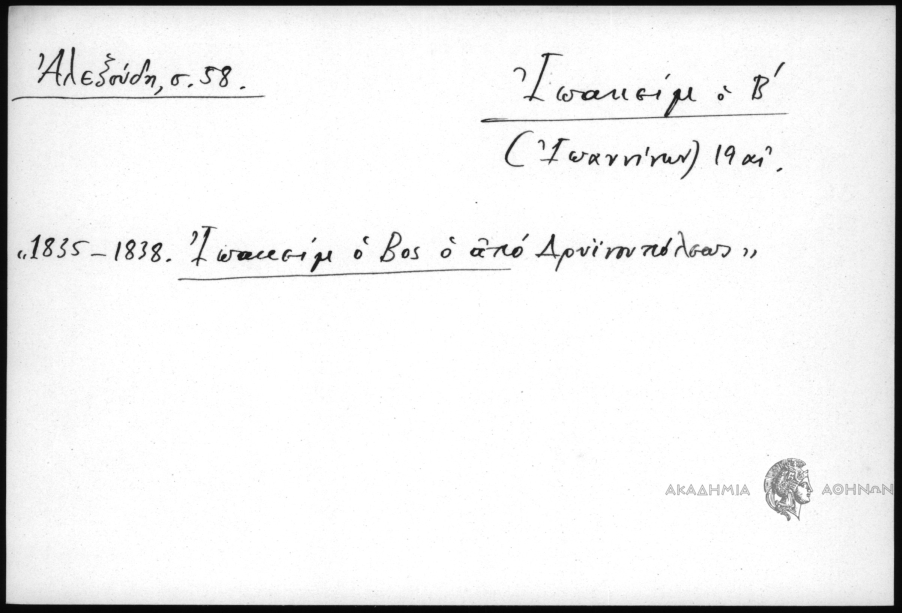 Ἀλεξούδη, σ. 58.
Ἰωακείμ ὁ Β΄
(Ἰωαννίνων) 19 αἰ.
„1835 – 1838. Ἰωακείμ ὁ Βος ὁ ἀπό Δρυϊνουπόλεως”
ΑΚΑΔΗΜΙΑ ΑΘΗΝΩΝ